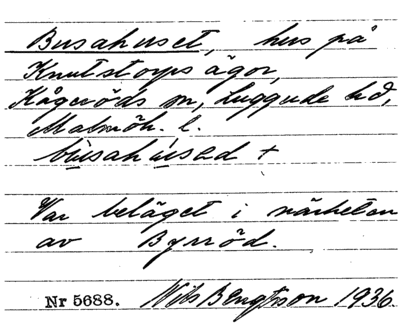 Busahuset, hus på
Knutstorps ägor,
Kågeröds sn, Luggude hd,
Malmöh. l.
bùsahúsəd +
Var beläget i närheten
av Byrröd.
Nr 5688. Nils Bengtsson 1936.